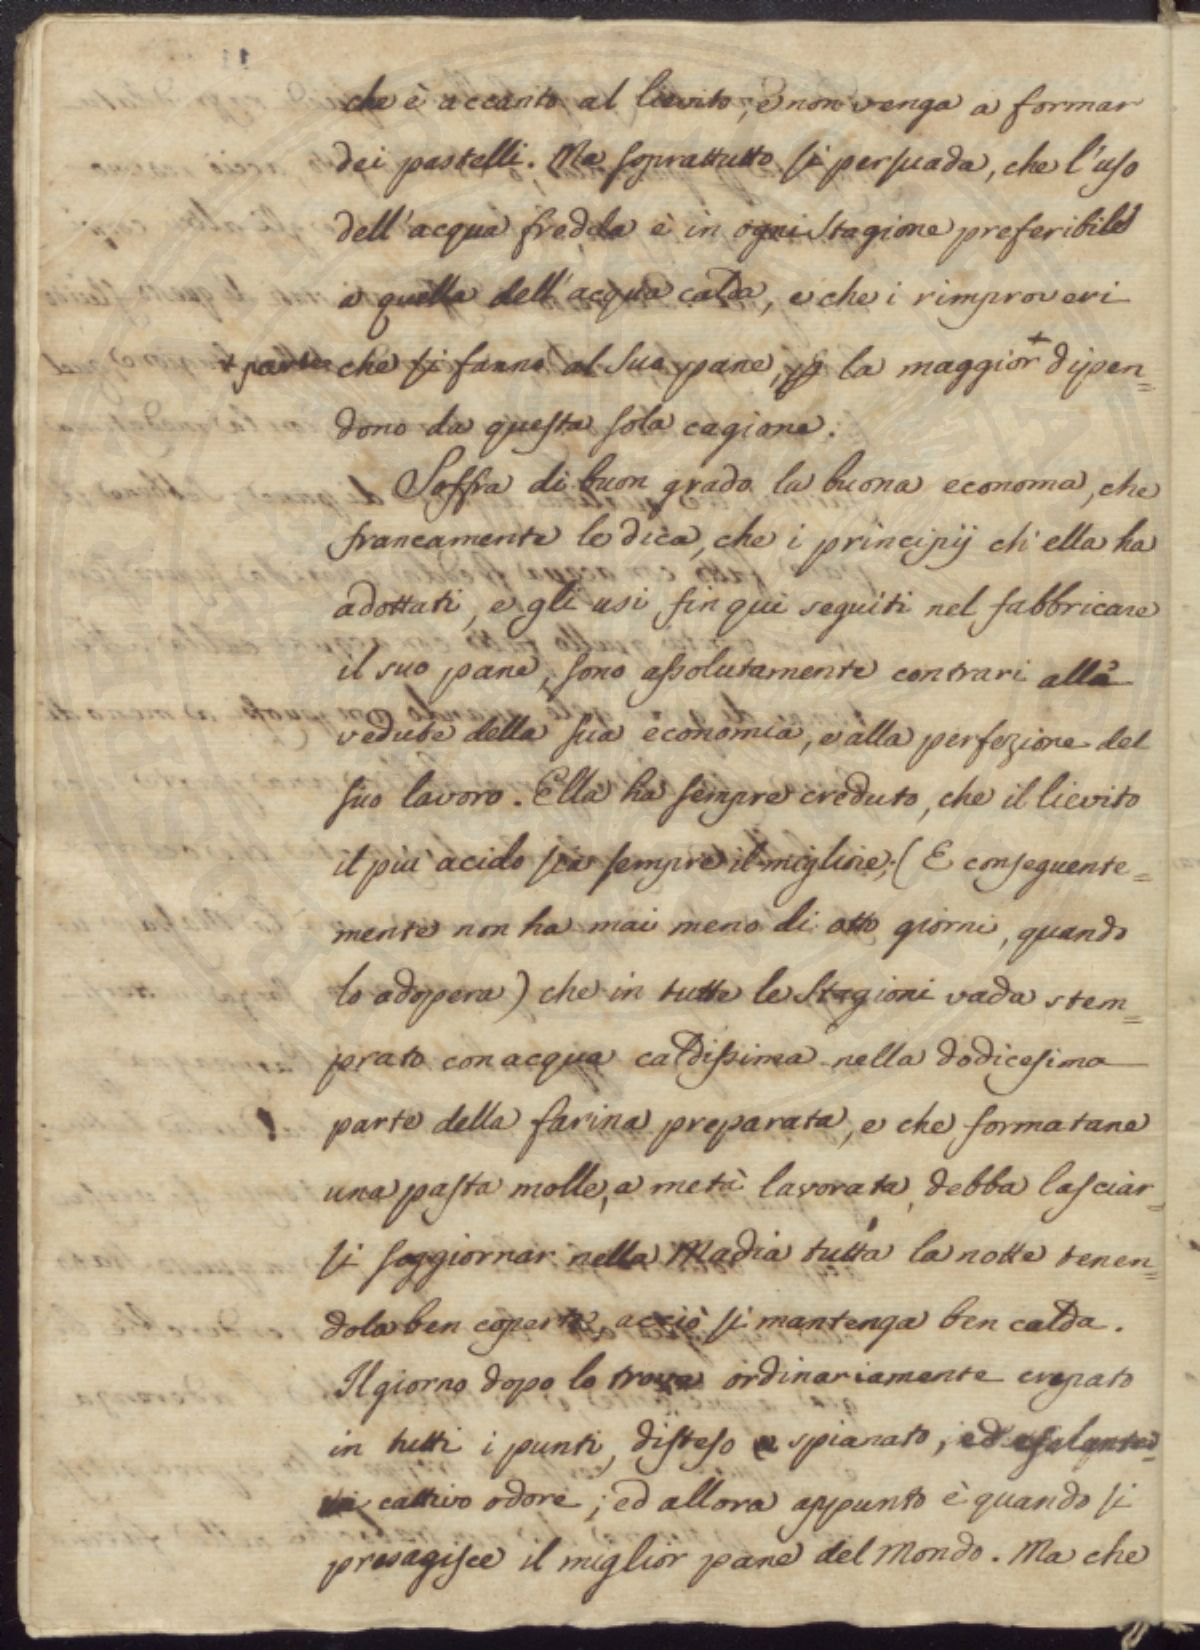 che è accanto al lievito, e non venga a formar
dei pastelli. Ma soprattutto si persuada, che l'uso
dell'acqua fredda è in ogni Stagione preferibile
a quella dell'acqua calda, e che i rimproveri
+ parte che si fanno al suo pane, la maggior + dipen=
dono da questa sola cagione.
Soffra di buon grado la buona economa, che
francamente le dica, che i principij ch'ella ha
adottati, e gli usi fin qui seguiti nel fabbricare
il suo pane, sono assolutamente contrari alla
vedute della sua economia, e alla perfezione del
suo lavoro. Ella ha sempre creduto, che il lievito
il più acido sia sempre il migliore; (E conseguente=
mente non ha mai meno di otto giorni, quando
lo adopera) che in tutte le Stagioni vada stem=
prato con acqua caldissima nella dodicesima
parte della farina preparata, e che formatane
una pasta molle, a metà lavorata, debba lasciar=
si soggiornar nella Madia tutta la notte tenen=
dola ben coperta, acciò si mantenga ben calda.
Il giorno dopo lo trova ordinariamente crepato
in tutti i punti, disteso e spianato, ed esalante
di cattivo odore; ed allora appunto è quando si
presagisce il miglior pane del Mondo. Ma che